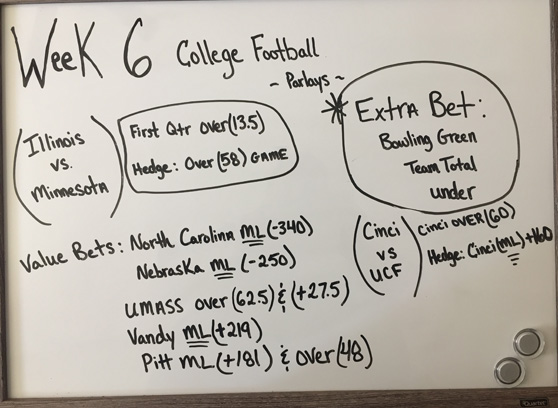 Week 6 College Football
~ Parlays ~
Illinois
vs.
Minnesota
First Qtr over (13.5)
Hedge: Over (58) GAME
* Extra Bet:
Bowling Green
Team Total
under
Value Bets: North Carolina ML (-340)
Nebraska ML (-250)
UMASS over (62.5) & (+27.5)
Vandy ML (+219)
Pitt ML (+181) & over (48)
Cinci
vs
UCF
Cinci OVER (60)
Hedge: Cinci (ML) +160
Quartet